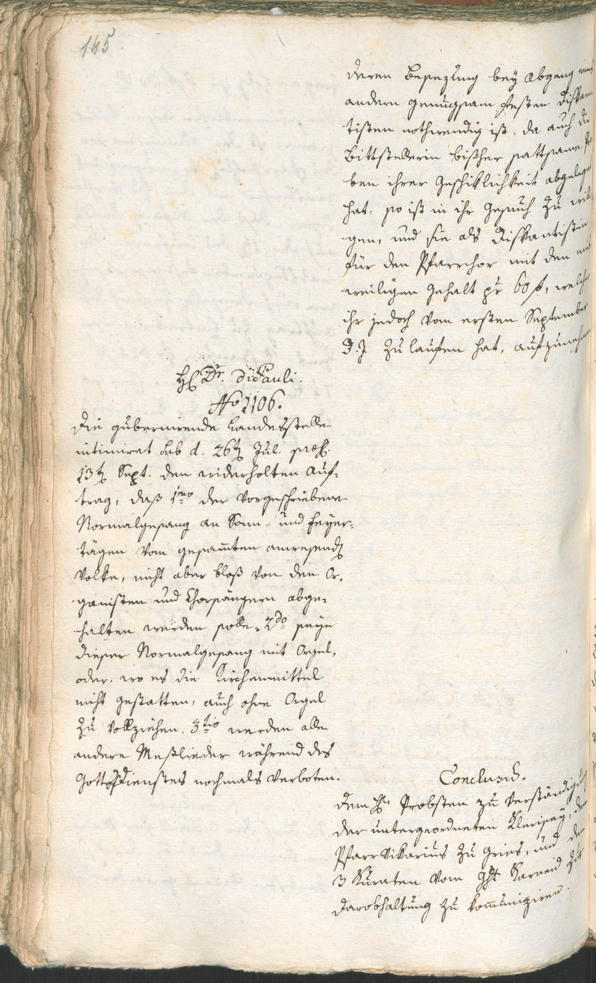 145.
deren Besezung bey Abgang eines
andern genugsam festen Diskan-
tisten nothwendig ist, da auch die
Bittstellerin bisher sattsame Pro-
ben ihrer Geschiklichkeit abgelegt
hat. so ist in ihr Gesuch zu willi-
gen, und sie als Diskantistin
für den Pfarrchor mit dem
weiligen Gehalt pr 60 f, welcher
ihr jedoch vom ersten September
d. J. zu laufen hat, aufzunehmen
H. Dr. DiPauli.
No 1106.
Die gubernirende Landesstelle
intimirt sub d. 26t Jul. praes.
13t Sept. den widerholten Auf-
trag, daß 1mo der vorgeschriebene
Normalgesang an Sonn- und Feyer-
tägen vom gesammten anwesend
Volke, nicht aber bloß von den Or-
ganisten und Chorsängern abge-
halten werden solle, 2do seye
dieser Normalgesang mit Orgel,
oder, wo es die Kirchenmittel
nicht gestatten, auch ohne Orgel
zu vollziehen. 3tio werden alle
andere Meßlieder während des
Gottesdienstes nochmals verboten.
Conclusum.
dem H. Probsten zu Verständigung
der untergeordneten Klerisey, dem
Pfarrvikarius zu Gries, und den
3 Kuraten vom Ght Karneid zur
Darobhaltung zu kommuniziren.